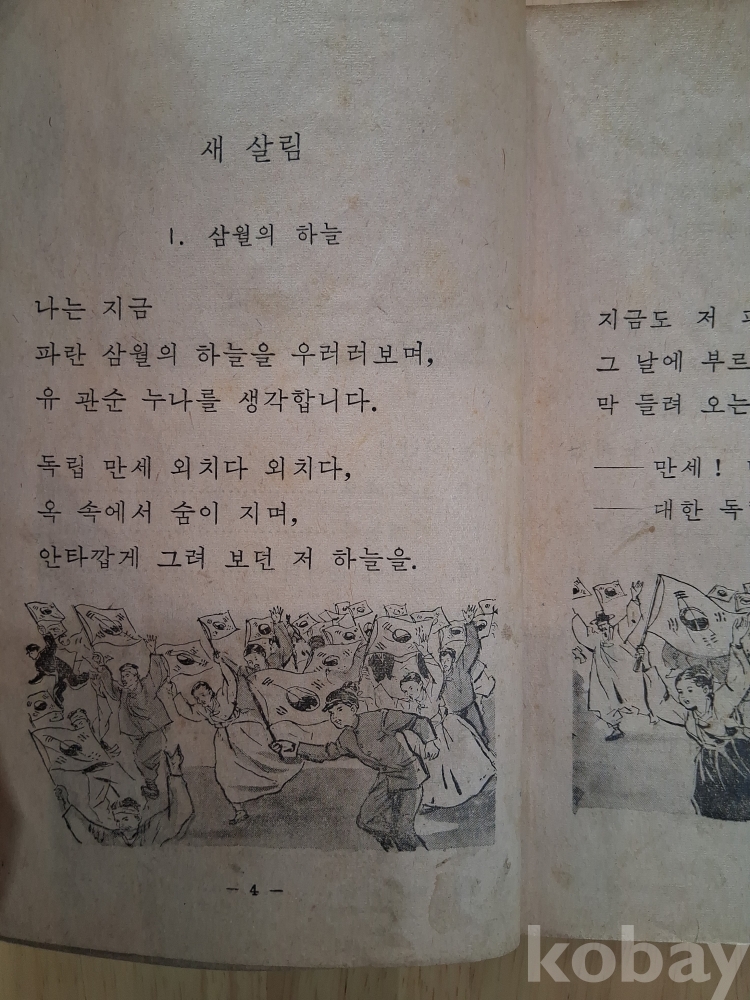 새 살림
1. 삼월의 하늘
나는 지금
파란 삼월의 하늘을 우러러보며,
유 관순 누나를 생각합니다.
독립 만세 외치다 외치다,
옥 속에서 숨이 지며,
안타깝게 그려 보던 저 하늘을.
- 4 -
지금도 저
그 날에
막 들려 오는
── 만세!
── 대한
kobay